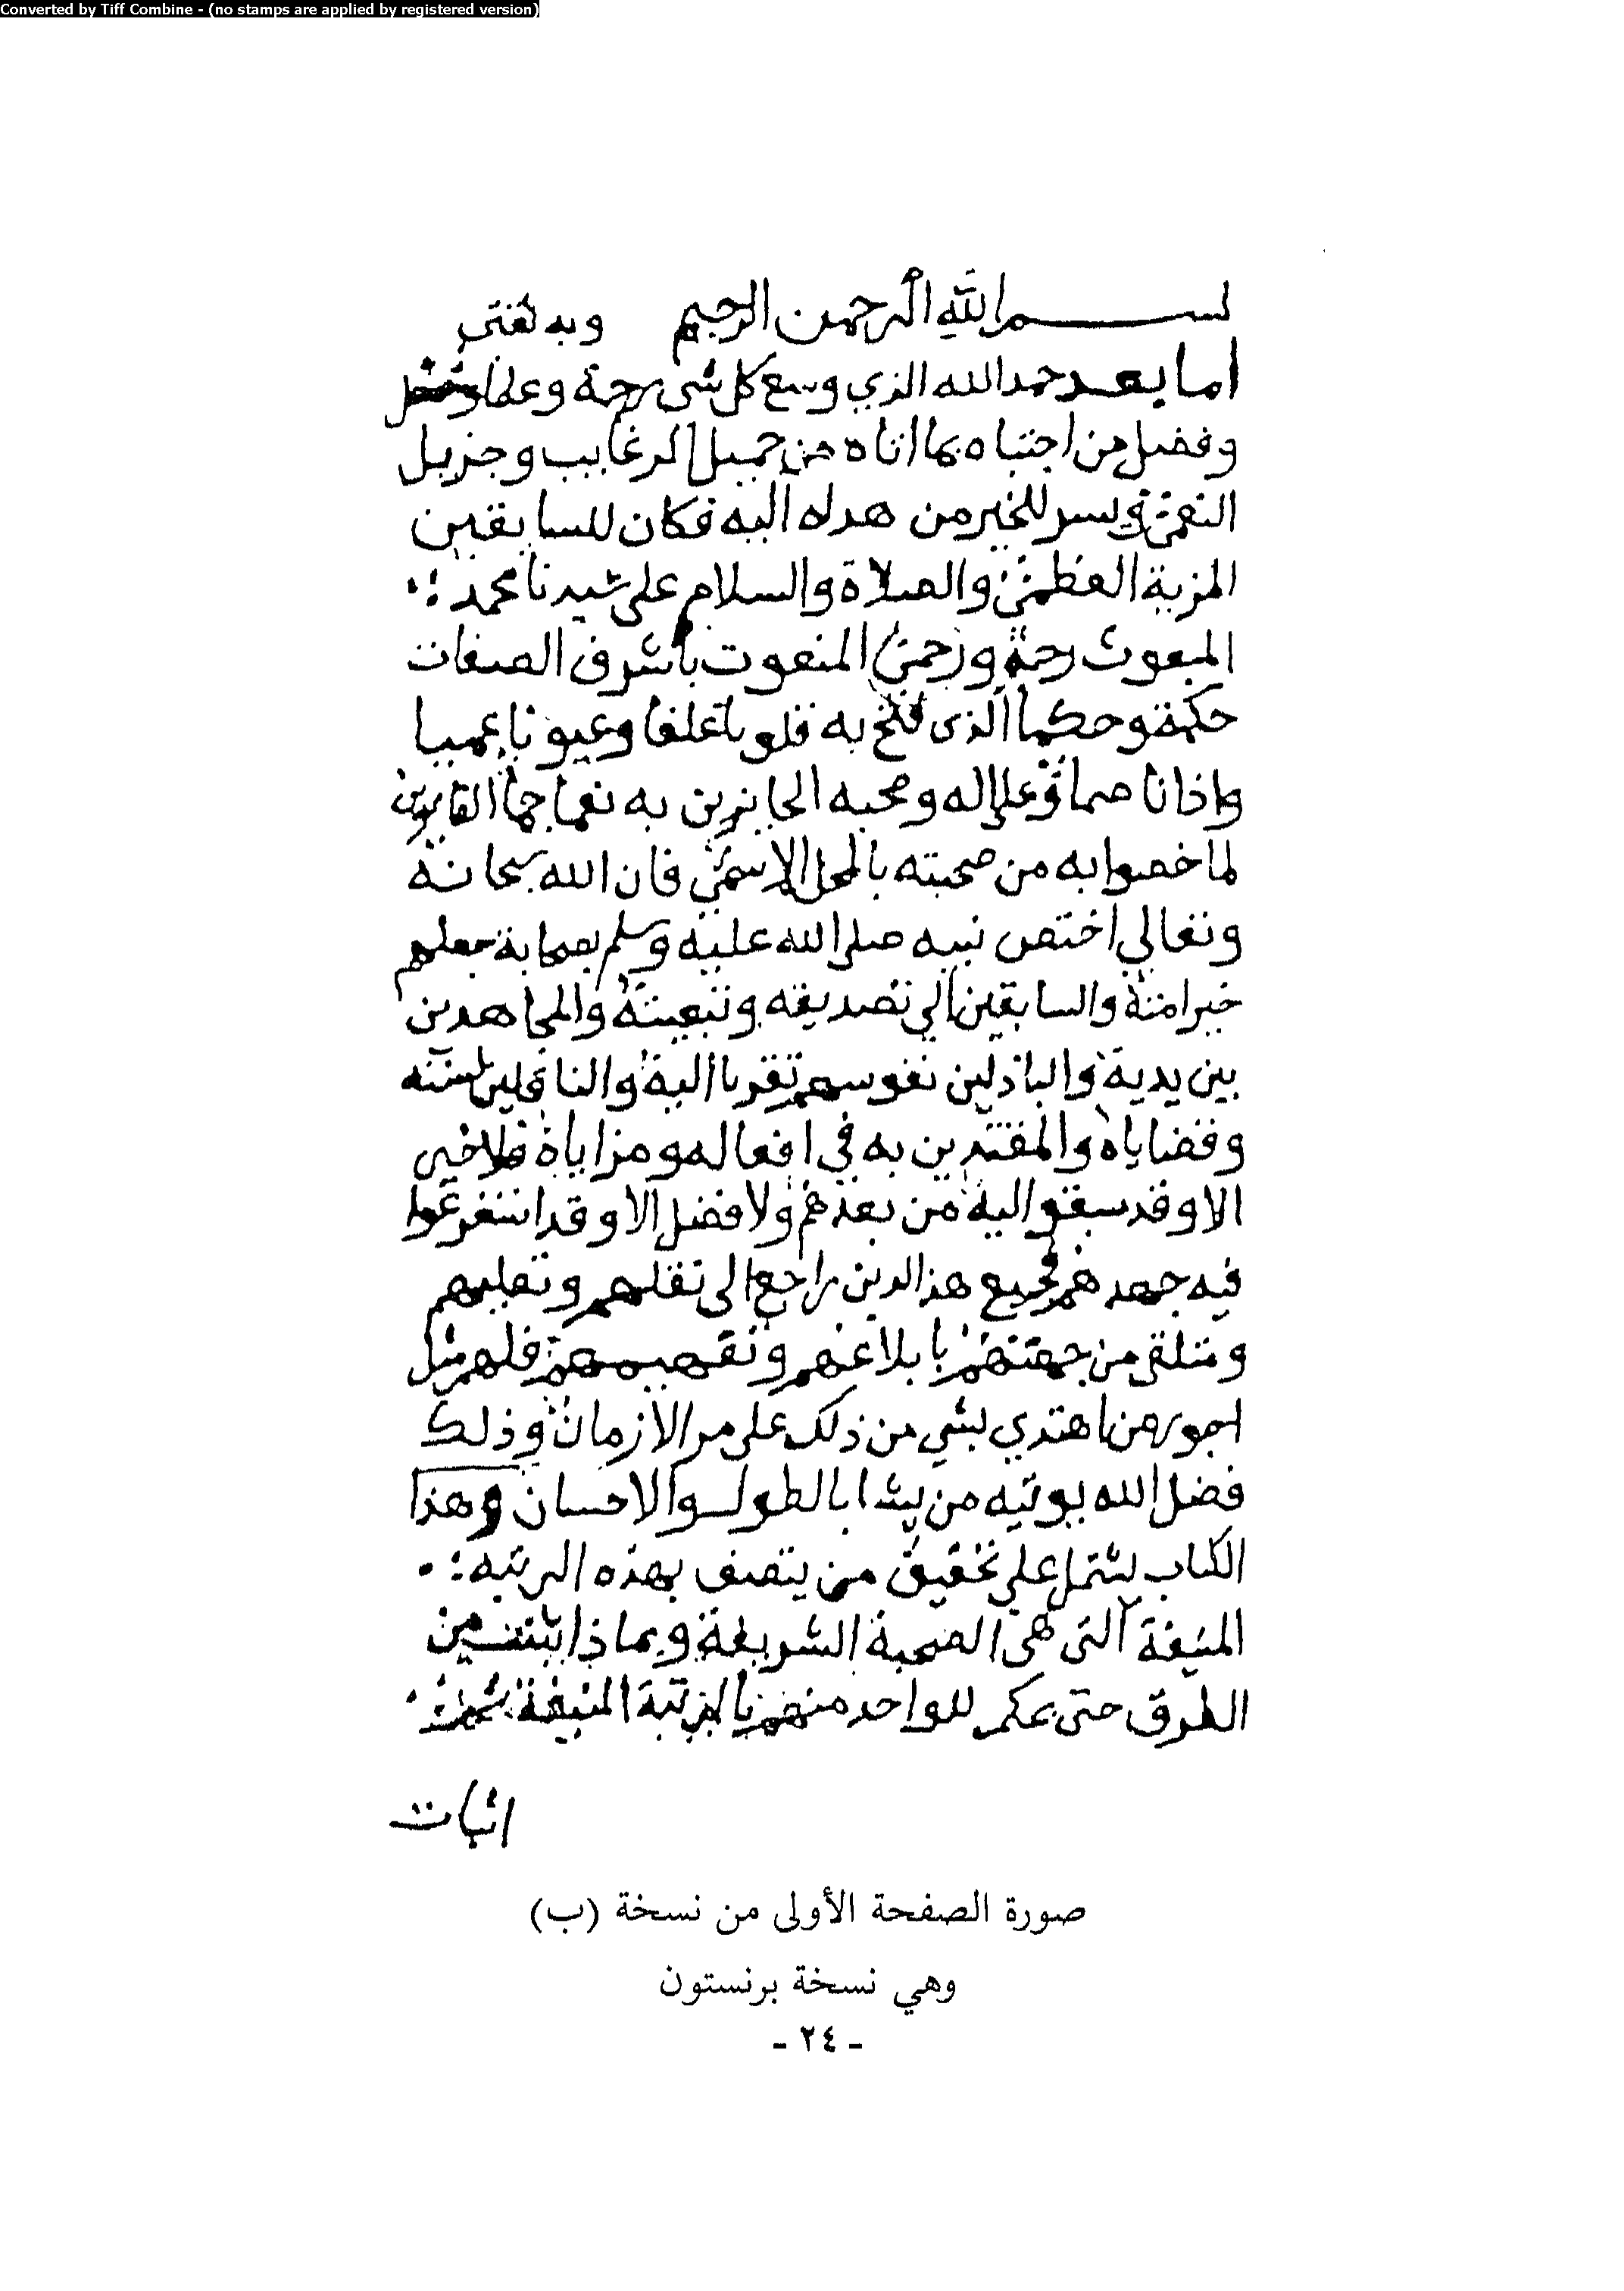 Converted by Tiff Combine - (no stamps are applied by registered version)
بسم الله الرحمن الرحيم وبه ثقتي
اما بعد حمد الله الذي وسع كل شى رحمة وعلما
وفضل من اجتباه بما اتاه من جميل الرغايب وجزيل
النعمى ويسر للخير من هداه اليه فكان للسابقين
المزية العظمى والصلاة والسلام على سيدنا محمد
المبعوث رحمة ورحمى المنعوت باشرف الصفات
حكمة وحكما الذى فتح به قلوبا غلفا وعيونا عميا
واذانا صما وعلى اله وصحبه الحايزين به نعما جما الفايزين
لما خصوا به من صحبته بالمحل الاسمى فان الله سبحانه
وتعالي اختص نبيه صلى الله عليه وسلم بصحابة جعلهم
خير امته والسابقين الي تصديقه وتبعيته والمجاهدين
بين يديه والباذلين نفوسهم تقربا اليه والناقلين لسننه
وقضاياه والمقتدين به في افعاله ومزاياه فلا خير
الا وقد سبقوا اليه من بعدهم ولا فضل الا وقد استفرغوا
فيه جهدهم فجميع هذا الدين راجع الى نقلهم وتعليمهم
ومتلقى من جهتهم بابلاغهم وتفهيمهم فلهم مثل
اجور من اهتدي بشي من ذلك على مر الازمان وذلك
فضل الله يوتيه من يشا بالطول والاحسان وهذا
الكتاب يشتمل على تحقيق من يتصف بهذه الرتبه
المنيفة التى هى الصحبة الشريفة وبماذا يثبت من
الطرق حتى يحكم للواحد منهم بالرتبة المنيفة
اثبات
صورة الصفحة الأولى من نسخة (ب)
وهي نسخة برنستون
- ٢٤ -